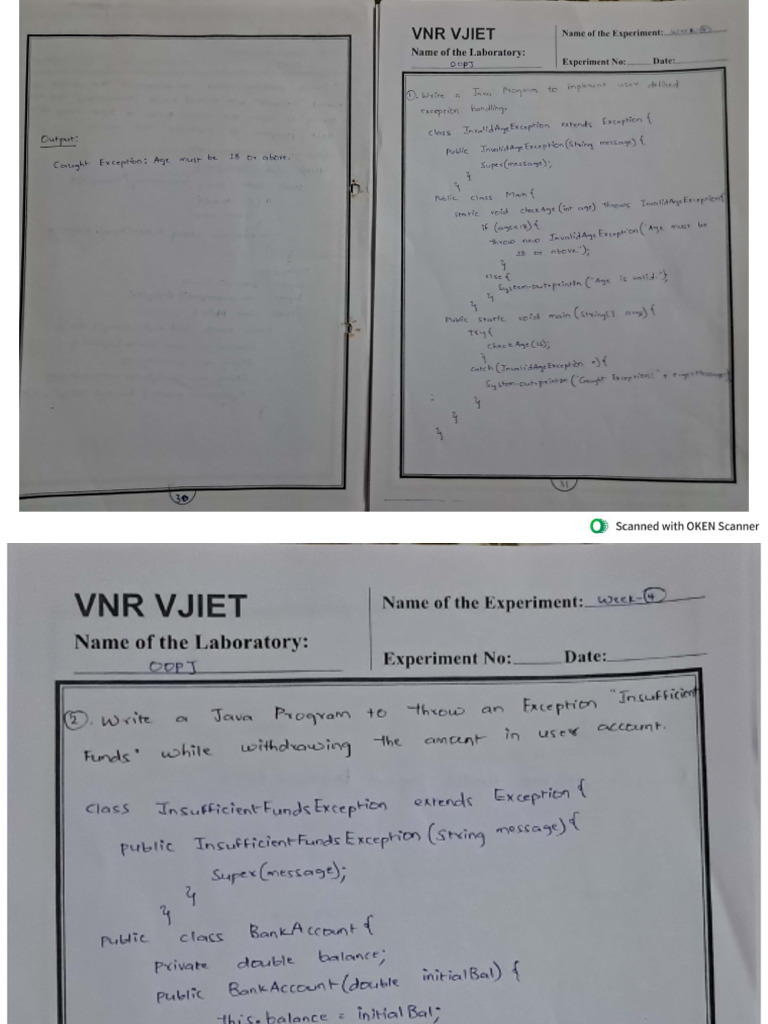 Output:
Caught Exception: Age must be 18 or above.
30
VNR VJIET
Name of the Laboratory:
OOPJ
Name of the Experiment: Week-4
Experiment No: Date:
1. Write a Java Program to implement user defined
exception handling.
class InvalidAgeException extends Exception {
Public InvalidAgeException(String message) {
Super(message);
}
}
Public class Main {
static void checkAge(int age) throws InvalidAgeException{
if (age<18) {
throw new InvalidAgeException("Age must be
18 or above.");
}
else {
System.out.println ("Age is valid.");
} }
Public static void main (String[] args) {
try {
checkAge(15);
}
catch (InvalidAgeException e) {
System.out.println ("Caught Exception:" + e.getMessage()
}
}
}
31
Scanned with OKEN Scanner
VNR VJIET
Name of the Laboratory:
OOPJ
Name of the Experiment: Week-4
Experiment No: Date:
2. Write a Java Program to throw an Exception "Insufficient
Funds" while withdrawing the amount in user account.
class InsufficientFundsException extends Exception {
public InsufficientFundsException (String message) {
Super(message);
}
}
public class BankAccount {
Private double balance;
public BankAccount (double initialBal) {
this.balance = initialBal;